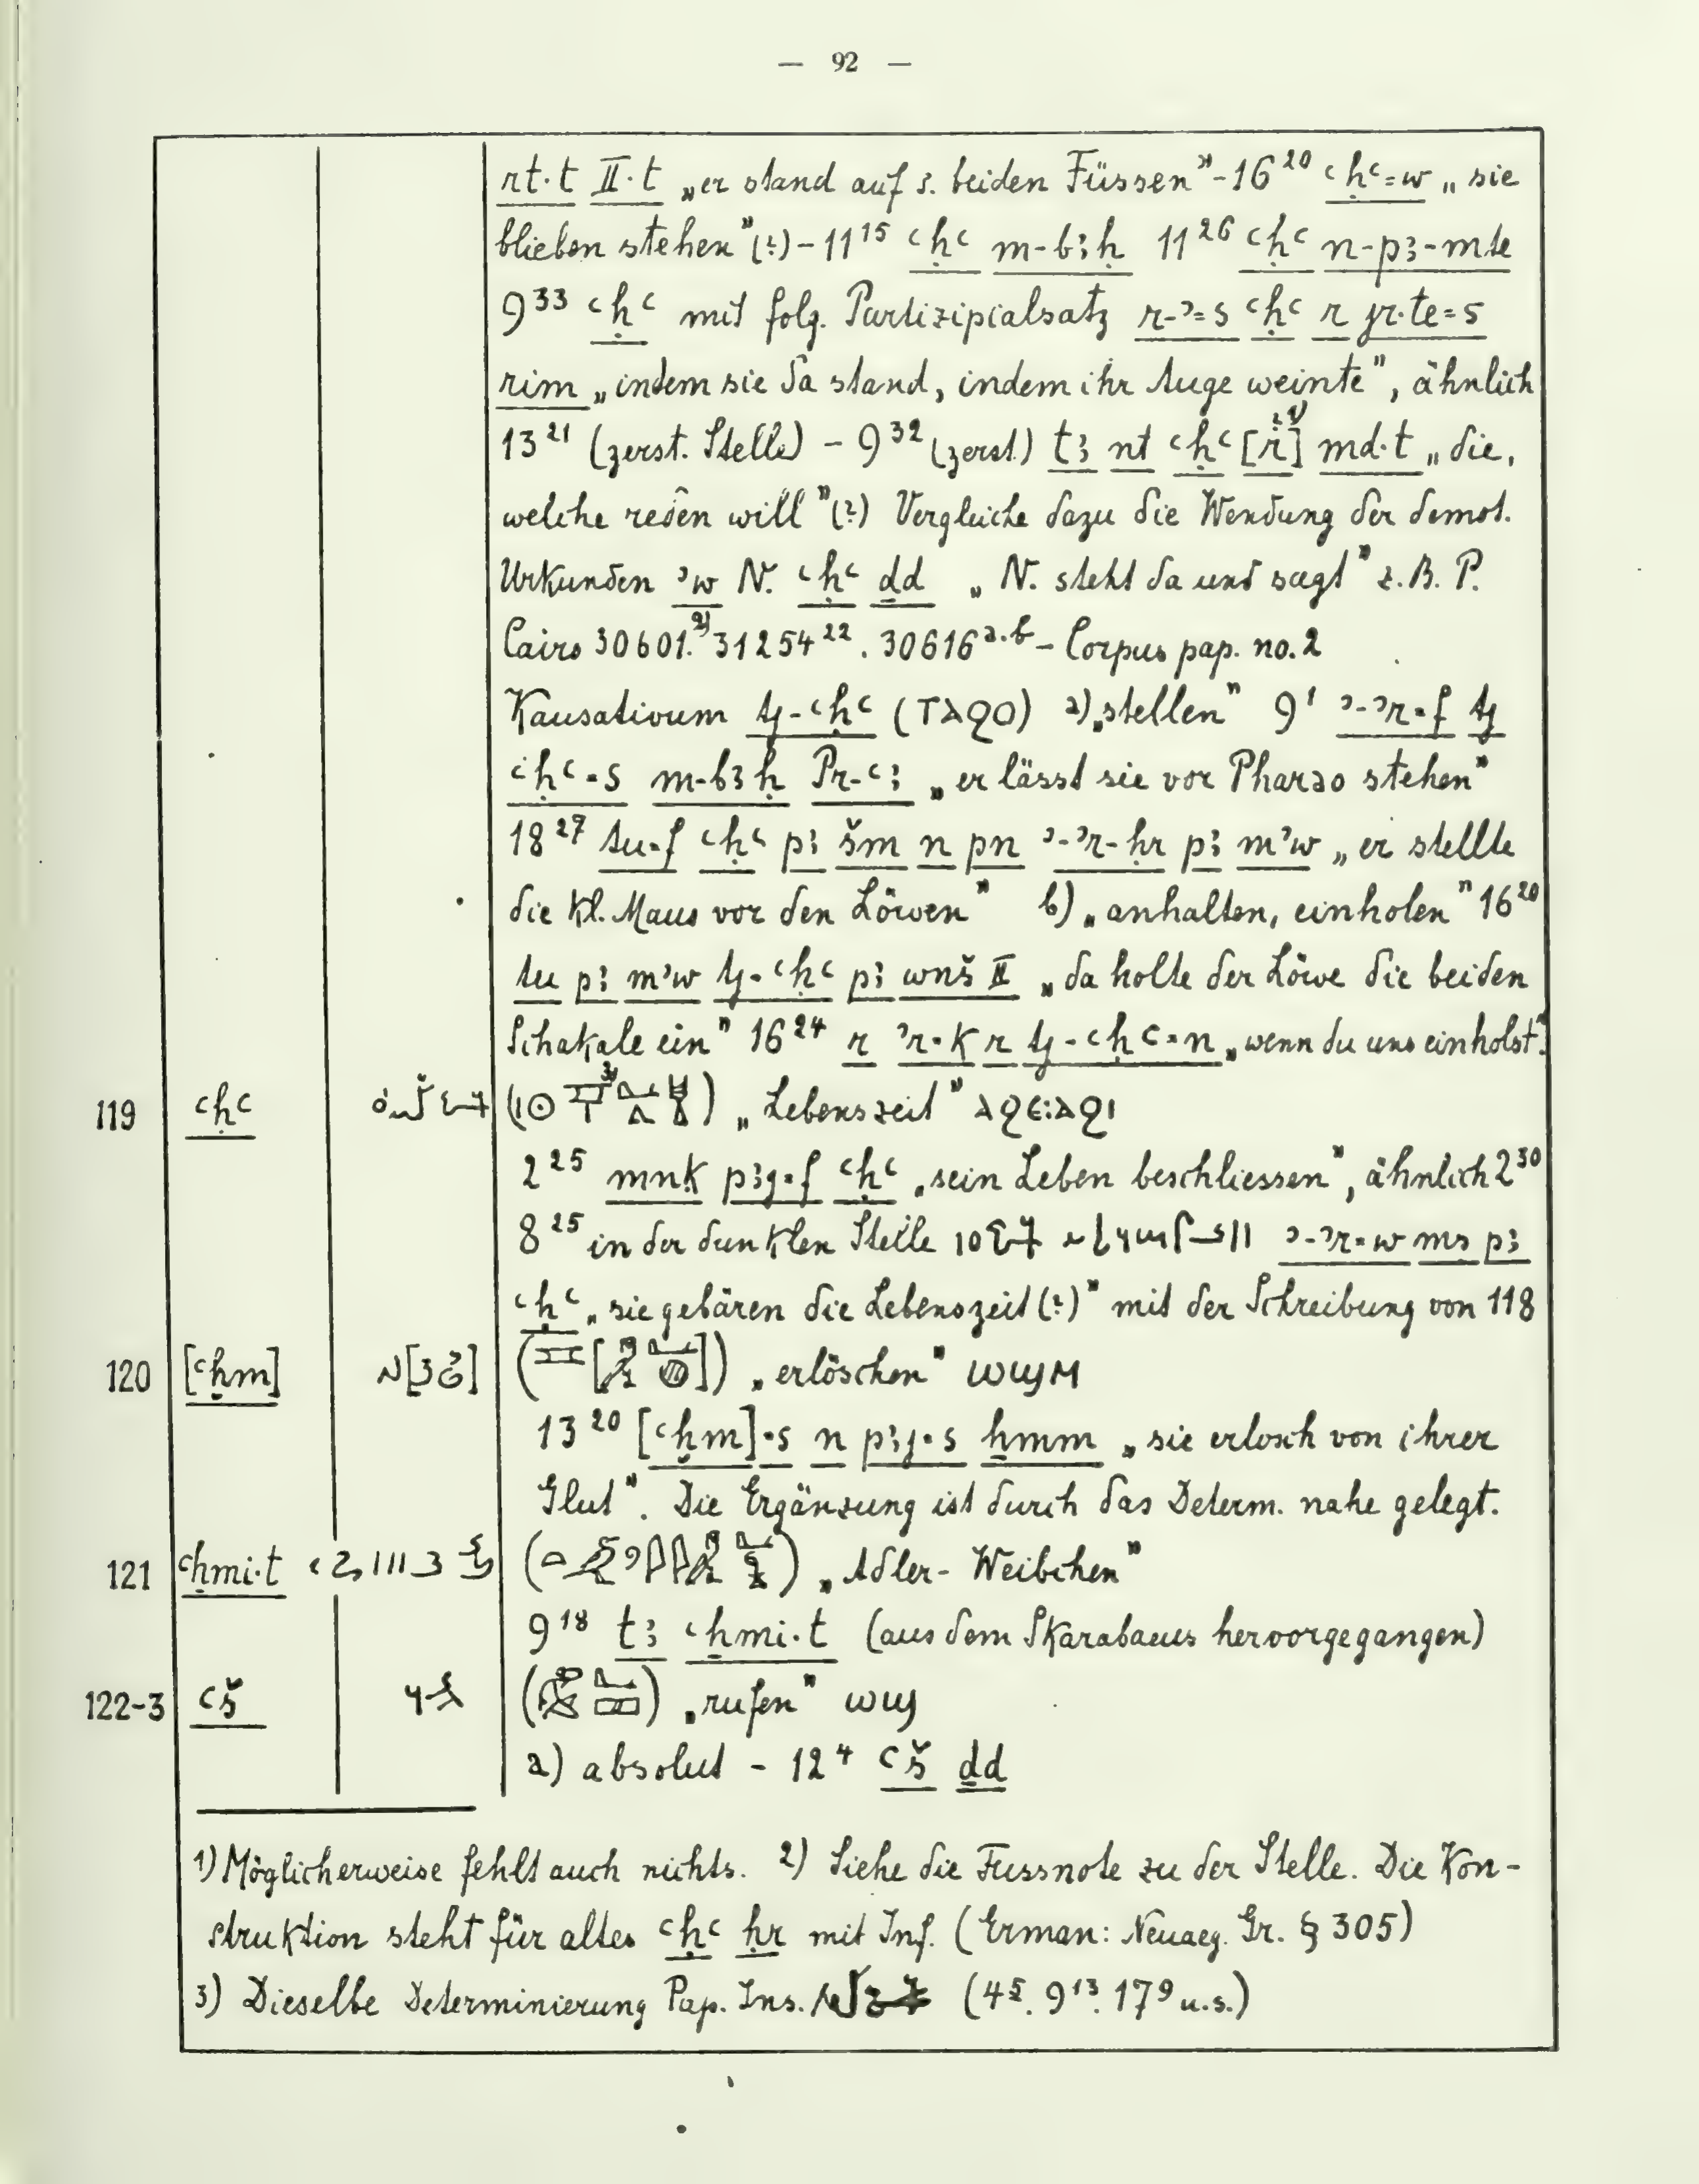 — 92 —
rt·t II·t „er stand auf s. beiden Füssen" - 16²⁰ ꜥḥꜥ=w „sie
blieben stehen" (?) - 11¹⁵ ꜥḥꜥ m-bꜣḥ 11²⁶ ꜥḥꜥ n-pꜣ-mte
9³³ ꜥḥꜥ mit folg. Partizipialsatz r-ʾ=s ꜥḥꜥ r jr·te=s
rim „indem sie da stand, indem ihr Auge weinte", ähnlich
13²¹ (zerst. Stelle) - 9³² (zerst.) tꜣ nt ꜥḥꜥ [r]¹⁾ md·t „die,
welche reden will" (?) Vergleiche dazu die Wendung der demot.
Urkunden ʾw N. ꜥḥꜥ ḏd „N. steht da und sagt" z.B. P.
Cairo 30601.²⁾ 31254²². 30616ᵃ·ᵇ - Corpus pap. no. 2
Kausativum tj-ꜥḥꜥ (ⲧⲁϩⲟ) a) „stellen" 9¹ ʾ-ʾr=f tj
ꜥḥꜥ=s m-bꜣḥ Pr-ꜥꜣ „er lässt sie vor Pharao stehen"
18²⁷ tu=f ꜥḥꜥ pꜣ šm n pn ʾ-ʾr-ḥr pꜣ mʾw „er stellte
die kl. Maus vor den Löwen" b) „anhalten, einholen" 16²⁰
tu pꜣ mʾw tj-ꜥḥꜥ pꜣ wnš II „da holte der Löwe die beiden
Schakale ein" 16²⁴ r ʾr=k r tj-ꜥḥꜥ=n „wenn du uns einholst."
119 ꜥḥꜥ ( ³⁾ ) „Lebenszeit" ⲁϩⲉ:ⲁϩⲓ
2²⁵ mnḳ pꜣj=f ꜥḥꜥ „sein Leben beschliessen", ähnlich 2³⁰
8²⁵ in der dunklen Stelle ʾ-ʾr=w ms pꜣ
ꜥḥꜥ „sie gebären die Lebenszeit (?)" mit der Schreibung von 118
120 [ꜥḫm] „erlöschen" ⲱϣⲙ
13²⁰ [ꜥḫm]=s n pꜣj=s ẖmm „sie erlosch von ihrer
Glut". Die Ergänzung ist durch das Determ. nahe gelegt.
121 ꜥẖmi·t „Adler-Weibchen"
9¹⁸ tꜣ ꜥẖmi·t (aus dem Skarabaeus hervorgegangen)
122-3 ꜥš „rufen" ⲱϣ
a) absolut - 12⁴ ꜥš ḏd
1) Möglicherweise fehlt auch nichts. 2) Siehe die Fussnote zu der Stelle. Die Kon-
struktion steht für altes ꜥḥꜥ ḥr mit Inf. (Erman: Neuaeg. Gr. § 305)
3) Dieselbe Determinierung Pap. Ins. (4⁵. 9¹³. 17⁹ u.s.)